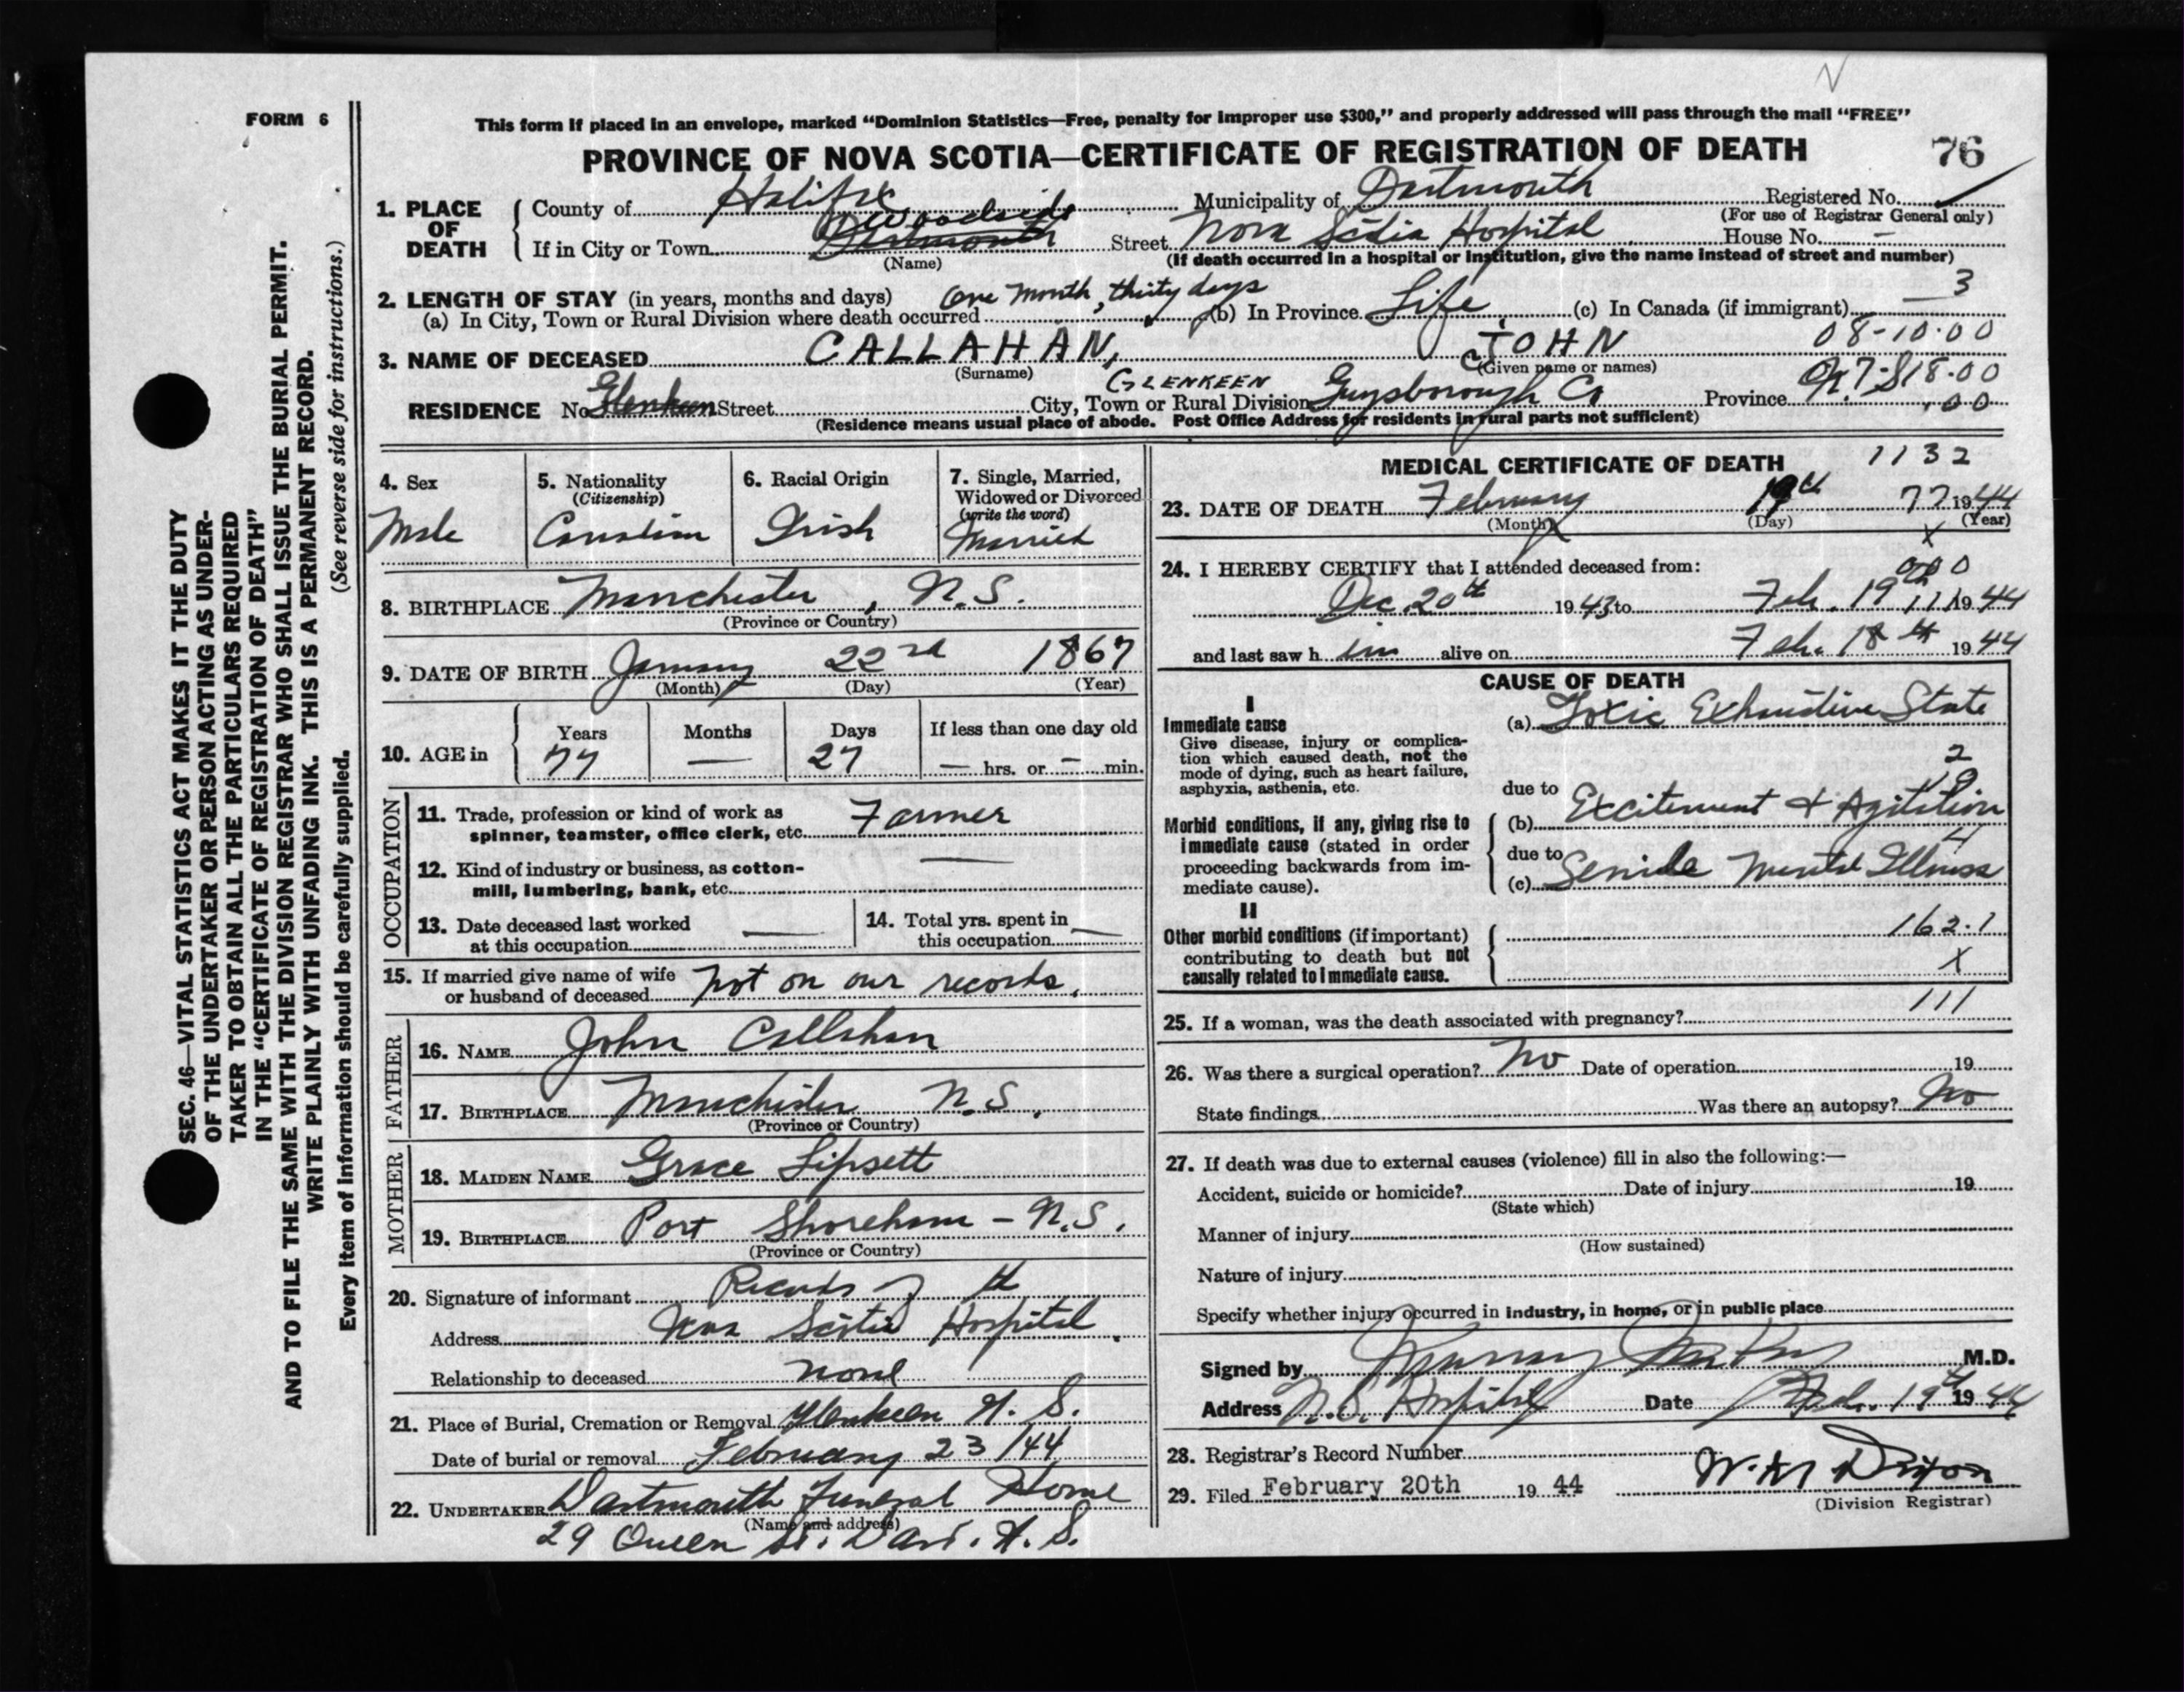 FORM 6
This form if placed in an envelope, marked "Dominion Statistics—Free, penalty for improper use $300," and properly addressed will pass through the mail "FREE"
PROVINCE OF NOVA SCOTIA—CERTIFICATE OF REGISTRATION OF DEATH 76
SEC. 46—VITAL STATISTICS ACT MAKES IT THE DUTY
OF THE UNDERTAKER OR PERSON ACTING AS UNDER-
TAKER TO OBTAIN ALL THE PARTICULARS REQUIRED
IN THE "CERTIFICATE OF REGISTRATION OF DEATH"
AND TO FILE THE SAME WITH THE DIVISION REGISTRAR WHO SHALL ISSUE THE BURIAL PERMIT.
WRITE PLAINLY WITH UNFADING INK. THIS IS A PERMANENT RECORD.
Every item of information should be carefully supplied. (See reverse side for instructions.)
1. PLACE OF DEATH
County of Halifax Municipality of Dartmouth Registered No.
(For use of Registrar General only)
If in City or Town Woodside Dartmouth Street Nova Scotia Hospital House No. -
(Name) (If death occurred in a hospital or institution, give the name instead of street and number)
2. LENGTH OF STAY (in years, months and days) One month, thirty days 3
(a) In City, Town or Rural Division where death occurred (b) In Province Life (c) In Canada (if immigrant)
3. NAME OF DECEASED CALLAHAN, JOHN 08-10-00
(Surname) (Given name or names)
RESIDENCE No. Glenkeen Street City, Town or Rural Division GLENKEEN Guysborough Co Province 818-00
.00
(Residence means usual place of abode. Post Office Address for residents in rural parts not sufficient)
4. Sex 5. Nationality (Citizenship) 6. Racial Origin 7. Single, Married, Widowed or Divorced (write the word)
Male Canadian Irish Married
8. BIRTHPLACE Manchester, N.S.
(Province or Country)
9. DATE OF BIRTH January 22nd 1867
(Month) (Day) (Year)
10. AGE in Years Months Days If less than one day old
77 — 27 — hrs. or — min.
OCCUPATION
11. Trade, profession or kind of work as spinner, teamster, office clerk, etc. Farmer
12. Kind of industry or business, as cotton-mill, lumbering, bank, etc. —
13. Date deceased last worked at this occupation —
14. Total yrs. spent in this occupation —
15. If married give name of wife or husband of deceased Not on our records.
FATHER
16. NAME John Callahan
17. BIRTHPLACE Manchester N.S.
(Province or Country)
MOTHER
18. MAIDEN NAME Grace Lipsett
19. BIRTHPLACE Port Shoreham - N.S.
(Province or Country)
20. Signature of informant Records of the
Address Nova Scotia Hospital.
Relationship to deceased none
21. Place of Burial, Cremation or Removal Glenkeen N. S.
Date of burial or removal February 23/44
22. UNDERTAKER Dartmouth Funeral Home
(Name and address)
29 Queen St. Dart. N. S.
MEDICAL CERTIFICATE OF DEATH 1132
23. DATE OF DEATH February 19th 77 1944
(Month) (Day) (Year)
X
24. I HEREBY CERTIFY that I attended deceased from:
000
Dec. 20th 1943 to Feb. 19th 1944
and last saw h im alive on Feb. 18th 1944
CAUSE OF DEATH
I
Immediate cause
Give disease, injury or complication which caused death, not the mode of dying, such as heart failure, asphyxia, asthenia, etc.
(a) Toxic Exhaustive State
2
19
due to
Morbid conditions, if any, giving rise to immediate cause (stated in order proceeding backwards from immediate cause).
(b) Excitement & Agitation
4
due to
(c) Senile Mental Illness
II
Other morbid conditions (if important) contributing to death but not causally related to immediate cause.
162.1
X
111
25. If a woman, was the death associated with pregnancy?
26. Was there a surgical operation? No Date of operation 19
State findings Was there an autopsy? No
27. If death was due to external causes (violence) fill in also the following:—
Accident, suicide or homicide? Date of injury 19
(State which)
Manner of injury
(How sustained)
Nature of injury
Specify whether injury occurred in industry, in home, or in public place
Signed by Murray M.D.
Address N.S. Hospital Date Feb. 19th 1944
28. Registrar's Record Number
29. Filed February 20th 19 44 W. M Dixon
(Division Registrar)